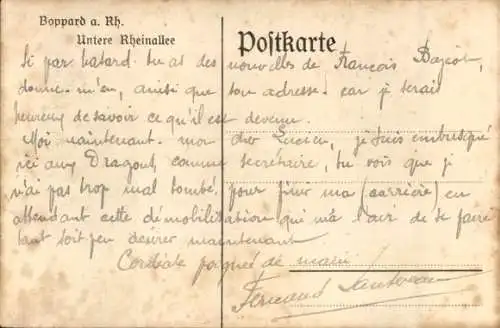 Boppard a. Rh.
Untere Rheinallee
Postkarte
Si par hasard tu as des nouvelles de François
donne-m'en, ainsi que son adresse car je serais
heureux de savoir ce qu'il est devenu.
Moi, maintenant mon cher Lucien, je suis embusqué
ici aux Dragons, comme secrétaire, tu vois que je
n'ai pas trop mal tombé, pour finir ma (carrière) en
attendant cette démobilisation qui m'a l'air de se faire
tant soit peu désirer maintenant
Cordiale poignée de main
Fernand